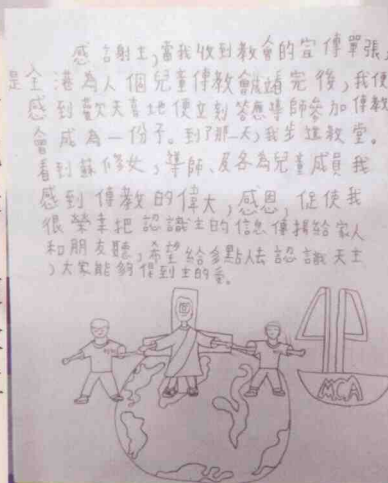 感謝主,當我收到教會的宣傳單張,
是全港為人個兒童傳教會就讀完後,我便
感到歡天喜地便立刻答應導師參加傳教
會成為一份子。到了那一天,我步進教堂。
看到蘇修女,導師、及各為兒童成員我
感到傳教的偉大,感恩,促使我
很榮幸把認識主的信息傳揚給家人
和朋友聽,希望給多點人去認識天主
,大家能夠得到主的愛。
MCA